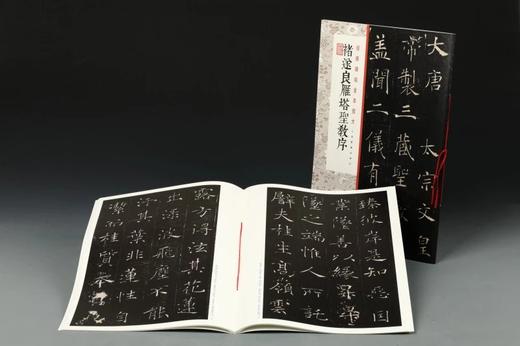 褚遂良雁塔聖教序
大唐 太宗文皇
帝製三藏聖
蓋聞二儀有
臻彼岸是知惡因
業墜善以緣昇昇
墜之端惟人所託
譬夫桂生高嶺雲
露方得泫其花蓮
出淥波飛塵不能
汙其葉非蓮性自
潔而桂質本